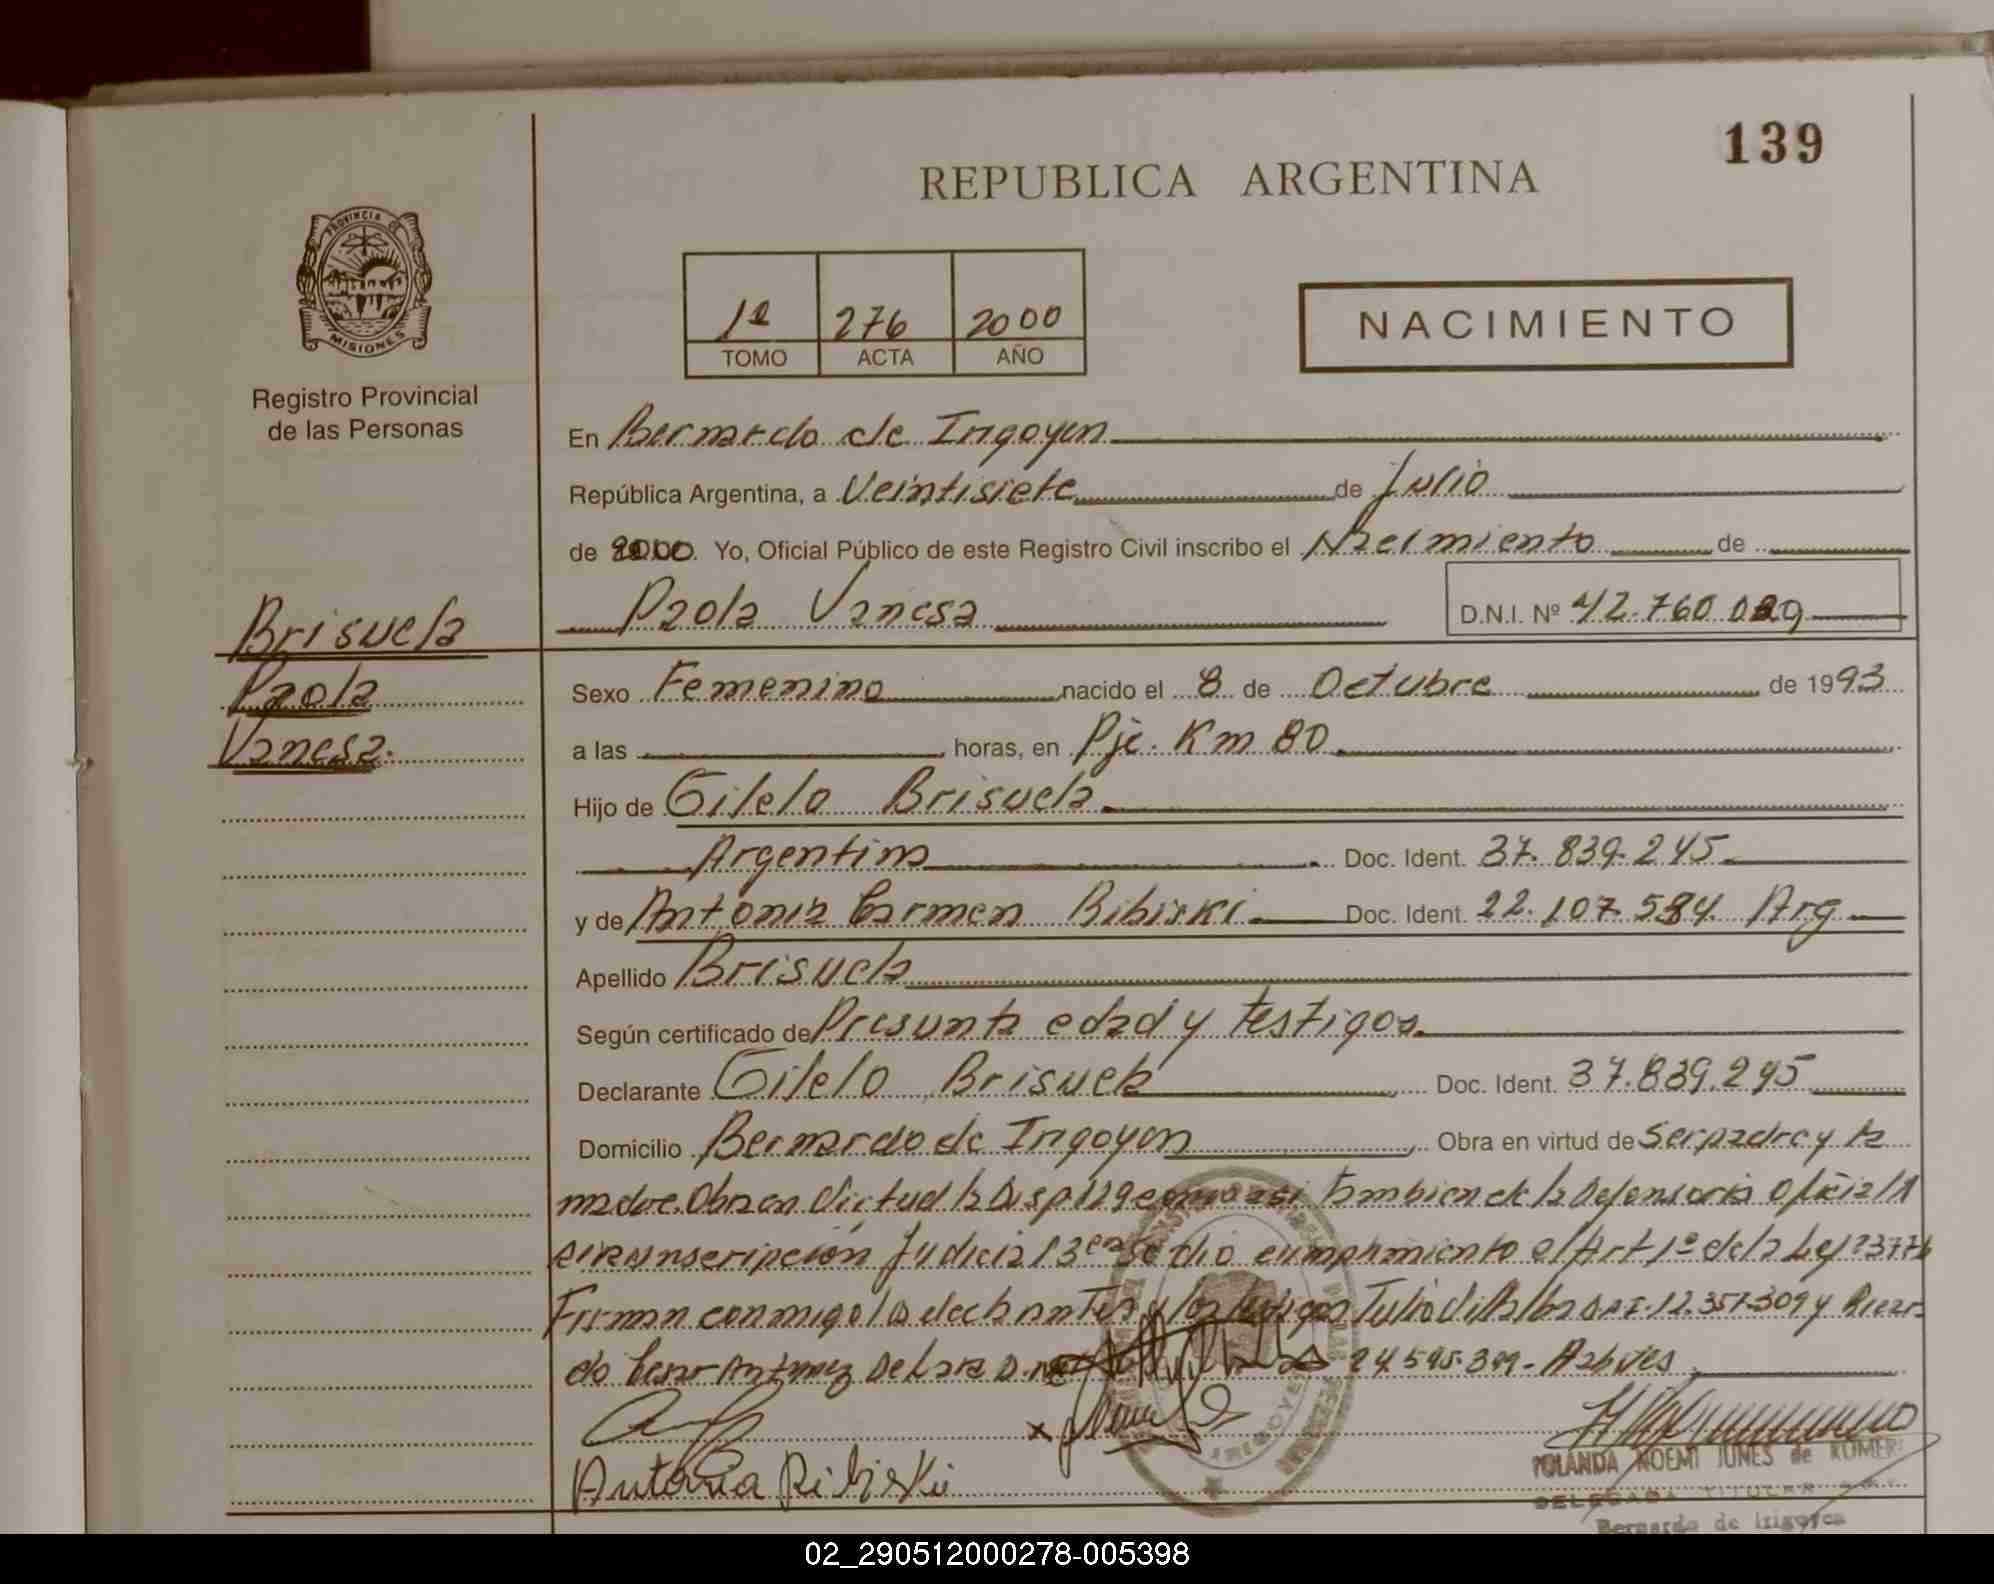 139
REPUBLICA ARGENTINA
PROVINCIA DE
MISIONES
Registro Provincial
de las Personas
1º 276 2000
TOMO ACTA AÑO
NACIMIENTO
En Bernardo de Irigoyen
República Argentina, a Veintisiete de Julio
de 2000. Yo, Oficial Público de este Registro Civil inscribo el Nacimiento de
Paola Vanesa D.N.I. Nº 42.760.029
Brisuela
Paola
Vanesa.
Sexo Femenino nacido el 8 de Octubre de 1993
a las horas, en Pje. Km 80
Hijo de Gilelo Brisuela
Argentino Doc. Ident. 37.839.245
y de Antonia Carmen Ribiski Doc. Ident. 22.107.584 Arg
Apellido Brisuela
Según certificado de Presunta edad y testigos
Declarante Gilelo Brisuela Doc. Ident. 37.839.245
Domicilio Bernardo de Irigoyen Obra en virtud de Ser padre y la
madre. Obra en Virtud la Disp 129 tambien de la Defensoria Oficial 1
circunscripción Judicial 3era se dió cumplimiento al Art 1º de la Ley 23776
Firman conmigo los declarantes y los testigos Tulio 12.357.309 y Ricar
do Cesar Antunez De Lara D.N.I. 24.595.399
Antonia Ribiski
YOLANDA NOEMI JUNES de ROMERO
DELEGADA TITULAR
Bernardo de Irigoyen
02_290512000278-005398